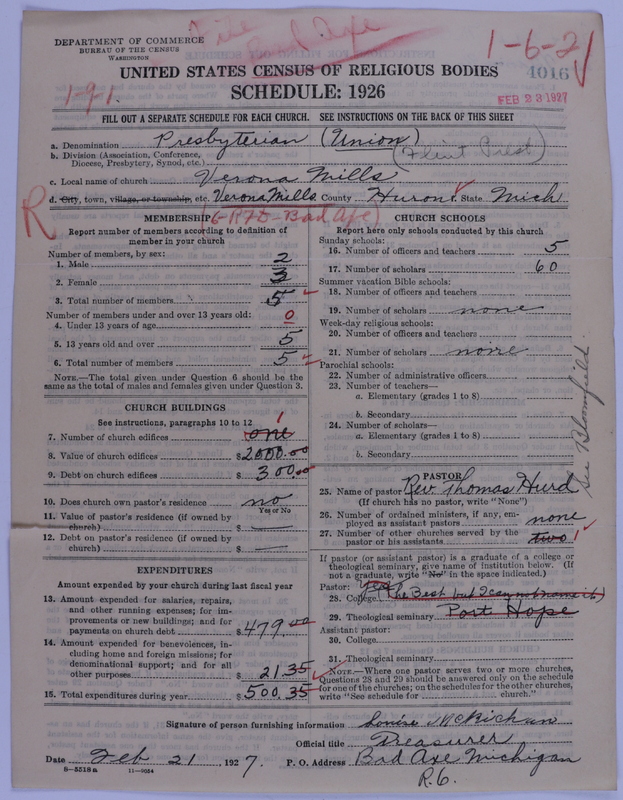 DEPARTMENT OF COMMERCE
BUREAU OF THE CENSUS
WASHINGTON
File
Bad Axe
1-6-2
4016
UNITED STATES CENSUS OF RELIGIOUS BODIES
SCHEDULE: 1926
1-91.
FEB 23 1927
FILL OUT A SEPARATE SCHEDULE FOR EACH CHURCH. SEE INSTRUCTIONS ON THE BACK OF THIS SHEET
a. Denomination Presbyterian (Union)
b. Division (Association, Conference, Diocese, Presbytery, Synod, etc.) (Flint Presb)
c. Local name of church Verona Mills
d. City, town, village, or township, etc. Verona Mills. County Huron. State Mich
R
(-RFD-Bad Axe)
MEMBERSHIP
Report number of members according to definition of
member in your church
Number of members, by sex:
1. Male 2
2. Female 3
3. Total number of members 5
Number of members under and over 13 years old:
4. Under 13 years of age 0
5. 13 years old and over 5
6. Total number of members 5
NOTE.—The total given under Question 6 should be the
same as the total of males and females given under Question 3.
CHURCH BUILDINGS
See instructions, paragraphs 10 to 12
7. Number of church edifices one 1
8. Value of church edifices $2000.00
9. Debt on church edifices $300.00
10. Does church own pastor's residence no
Yes or No
11. Value of pastor's residence (if owned by
church) $ —
12. Debt on pastor's residence (if owned by
church) $ —
EXPENDITURES
Amount expended by your church during last fiscal year
13. Amount expended for salaries, repairs,
and other running expenses; for im-
provements or new buildings; and for
payments on church debt $479.00
14. Amount expended for benevolences, in-
cluding home and foreign missions; for
denominational support; and for all
other purposes $21.35
15. Total expenditures during year $500.35
CHURCH SCHOOLS
Report here only schools conducted by this church
Sunday schools:
16. Number of officers and teachers 5
17. Number of scholars 60
Summer vacation Bible schools:
18. Number of officers and teachers
19. Number of scholars none
Week-day religious schools:
20. Number of officers and teachers
21. Number of scholars none
Parochial schools:
22. Number of administrative officers
23. Number of teachers—
a. Elementary (grades 1 to 8)
b. Secondary
24. Number of scholars—
a. Elementary (grades 1 to 8)
b. Secondary
See Bloomfield.
PASTOR
25. Name of pastor Rev. Thomas Hurd
(If church has no pastor, write "None")
26. Number of ordained ministers, if any, em-
ployed as assistant pastors none
27. Number of other churches served by the
pastor or his assistants two 1
If pastor (or assistant pastor) is a graduate of a college or
theological seminary, give name of institution below. (If
not a graduate, write "No" in the space indicated.)
Pastor: Yes
28. College (The Best but I can not name it)
29. Theological seminary Port Hope
Assistant pastor:
30. College
31. Theological seminary
NOTE.—Where one pastor serves two or more churches,
Questions 28 and 29 should be answered only on the schedule
for one of the churches; on the schedules for the other churches,
write "See schedule for church."
Signature of person furnishing information Louise McKichan
Official title Treasurer
Date Feb 21, 1927. P. O. Address Bad Axe Michigan
8-5518a 11-9054
R.6.